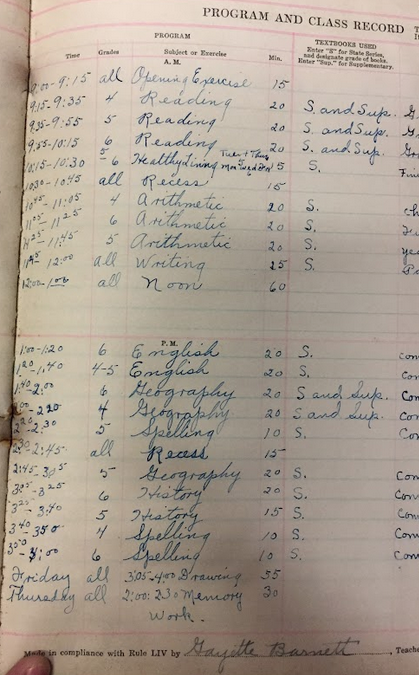 PROGRAM AND CLASS RECORD
PROGRAM
TEXTBOOKS USED
Time Grades Subject or Exercise Min. Enter "S" for State Series, and designate grade of books. Enter "Sup." for Supplementary.
A. M.
9:00-9:15 all Opening Exercise 15
9:15-9:35 4 Reading 20 S. and Sup.
9:35-9:55 5 Reading 20 S. and Sup.
9:55-10:15 6 Reading 20 S. and Sup.
10:15-10:30 5 6 Healthy Living Tues + Thurs Mon Wed + Fri 15 S.
10:30-10:45 all Recess 15
10:45-11:05 4 Arithmetic 20 S.
11:05-11:25 6 Arithmetic 20 S.
11:25-11:45 5 Arithmetic 20 S.
11:45 12:00 all Writing 25 S.
12:00-1:00 all Noon 60
P. M.
1:00-1:20 6 English 20 S.
1:20-1:40 4-5 English 20 S.
1:40-2:00 6 Geography 20 S and Sup.
2:00-2:20 4 Geography 20 S and Sup.
2:20-2:30 5 Spelling 10 S.
2:30-2:45 all Recess 15
2:45-3:05 5 Geography 20 S.
3:05-3:25 6 History 20 S.
3:25-3:40 5 History 15 S.
3:40-3:50 4 Spelling 10 S.
3:50-4:00 6 Spelling 10 S.
Friday all 3:05-4:00 Drawing 55
Thursday all 2:00:2:30 Memory 30
Work.
Made in compliance with Rule LIV by Gayette Barnett, Teache